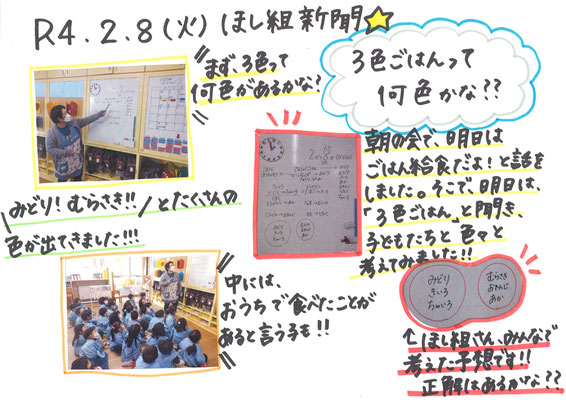 R4.2.8(火) ほし組新聞
まず、3色って
何色があるかな?
3色ごはんって
何色かな??
朝の会で、明日は
ごはん給食だよ!と話を
しました。そこで、明日は、
「3色ごはん」と聞き、
子どもたちと色々と
考えてみました!!
みどり! むらさき!! とたくさんの
色が出てきました!!!
中には、
おうちで食べたことが
あると言う子も!!
みどり
きいろ
ちゃいろ
むらさき
おれんじ
あか
↑ほし組さん、みんなで
考えた予想です!!
正解はあるかな??